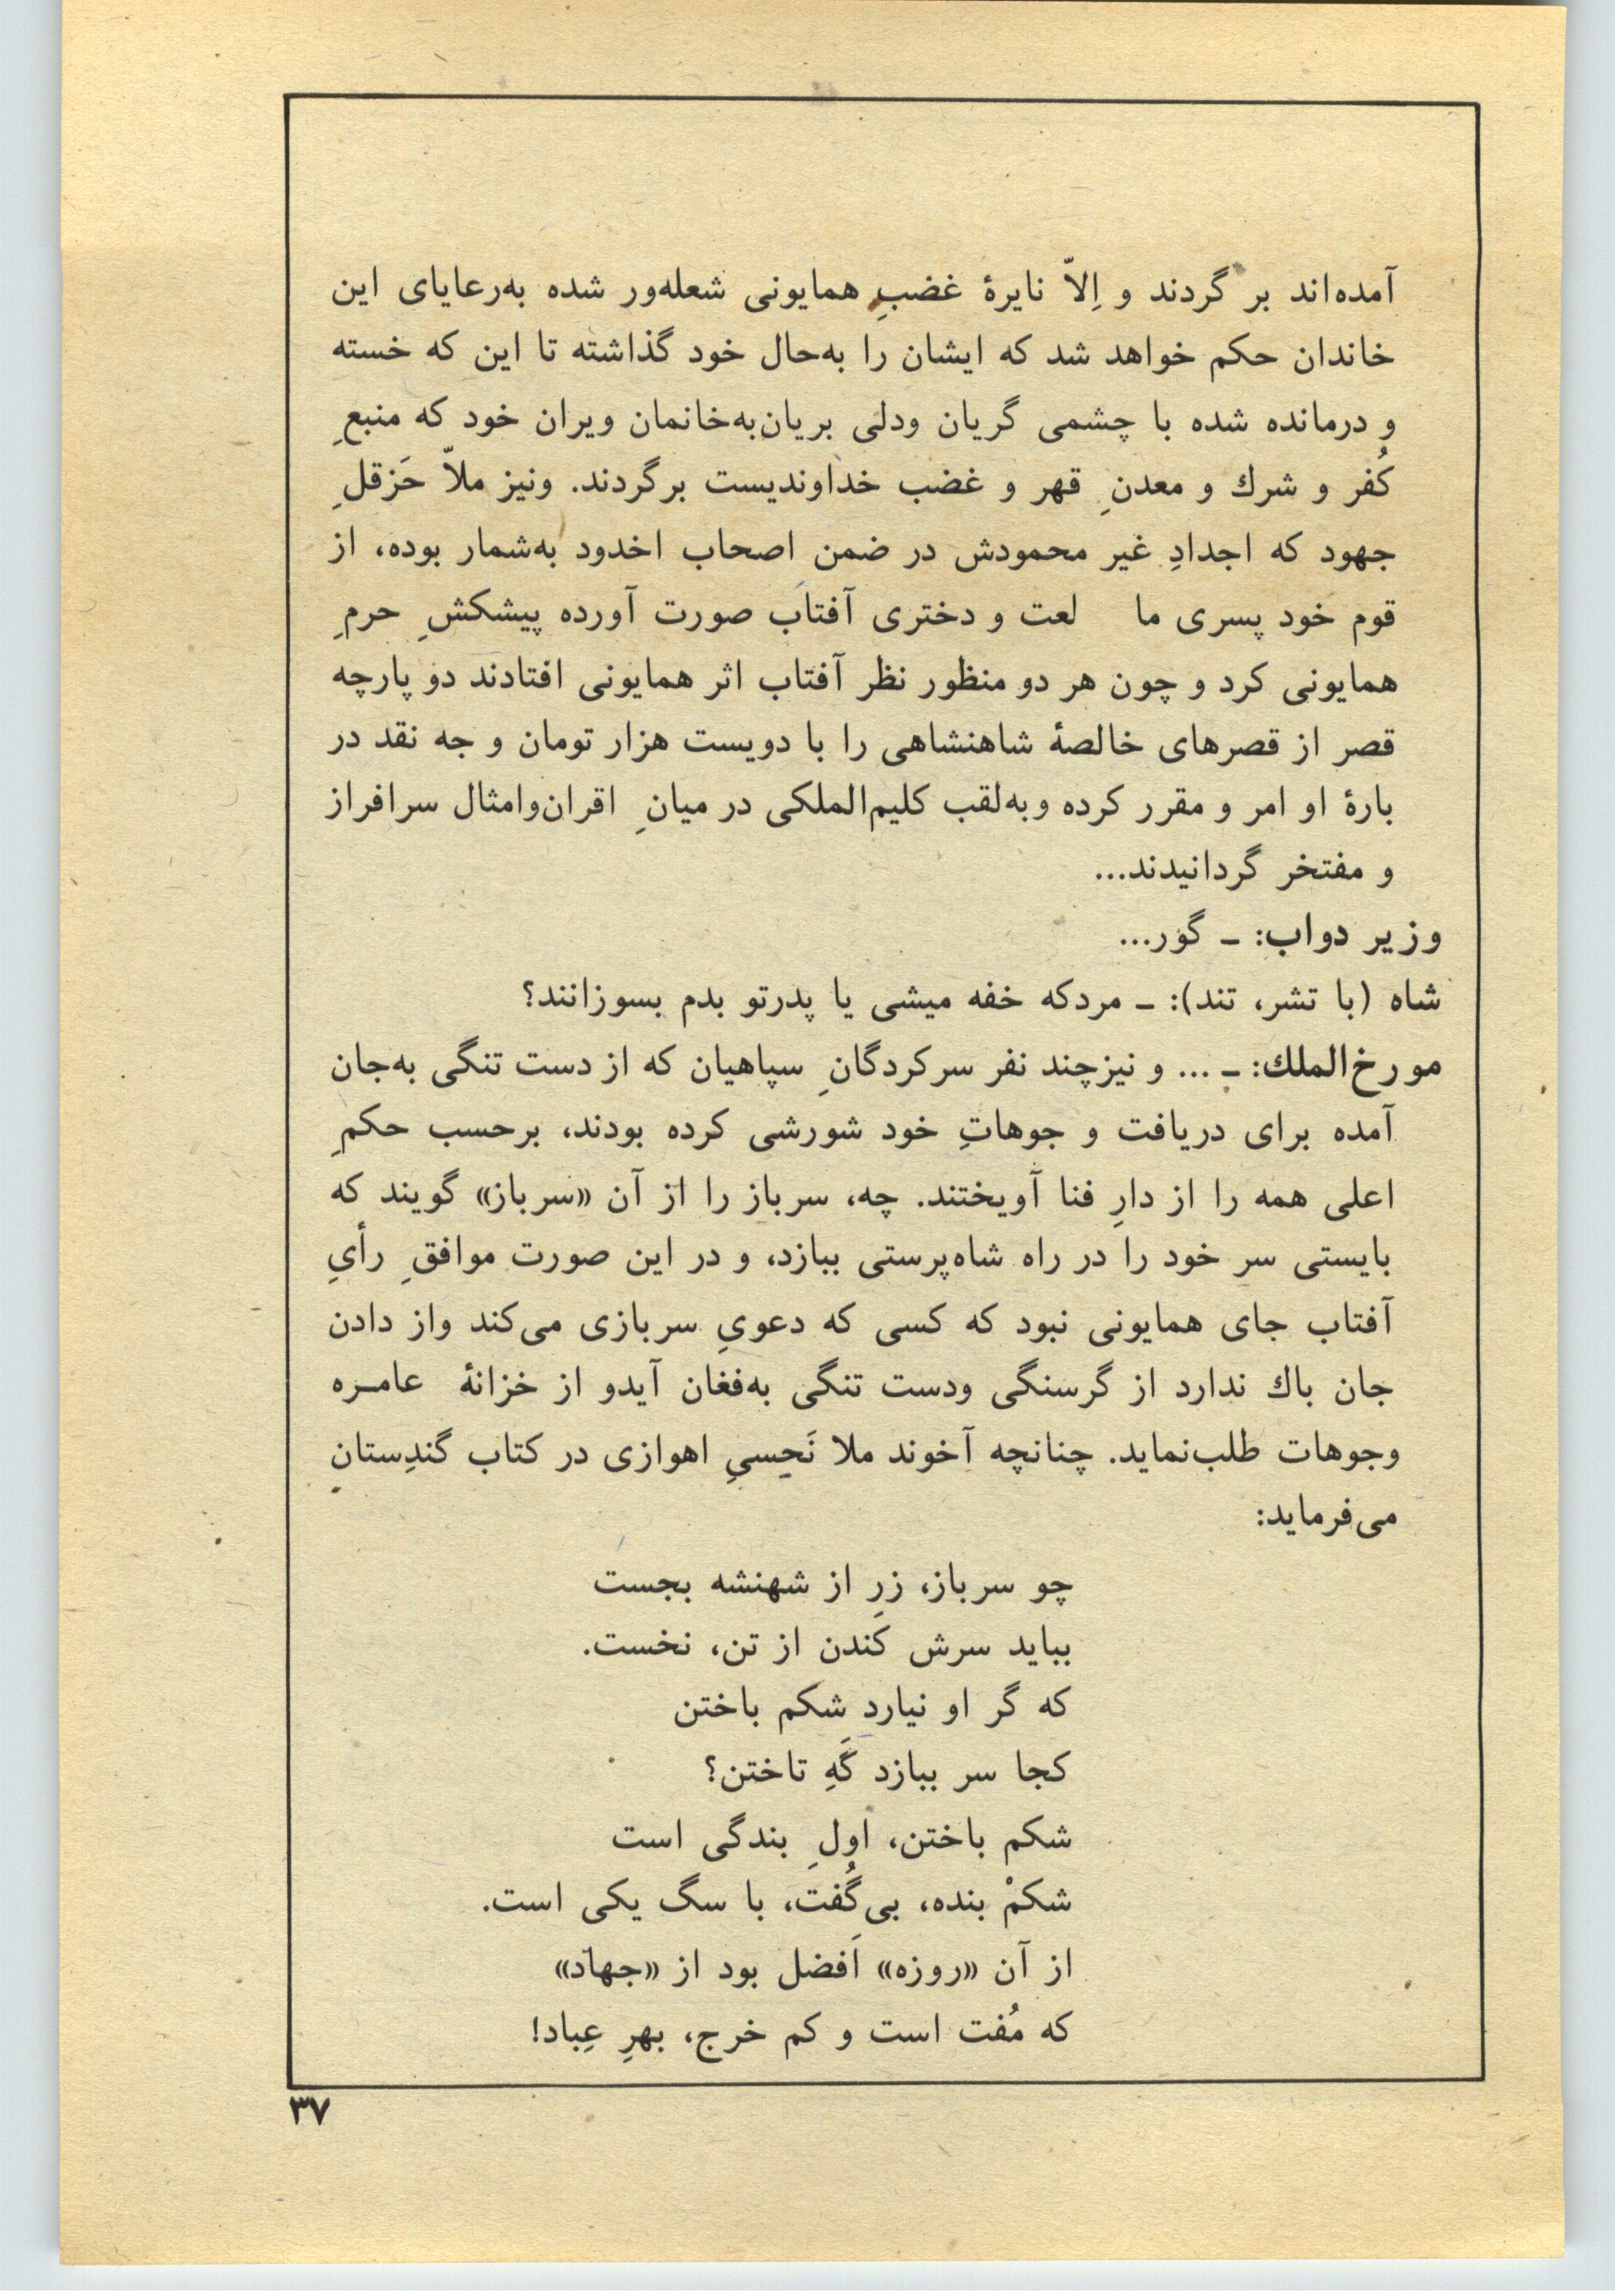 آمده‌اند بر گردند و اِلاّ نایرهٔ غضبِ همایونی شعله‌ور شده به‌رعایای این
خاندان حکم خواهد شد که ایشان را به‌حال خود گذاشته تا این که خسته
و درمانده شده با چشمی گریان ودلی بریان‌به‌خانمان ویران خود که منبعِ
کُفر و شرك و معدنِ قهر و غضب خداوندیست برگردند. ونیز ملاّ حَزقلِ
جهود که اجدادِ غیر محمودش در ضمن اصحاب اخدود به‌شمار بوده، از
قوم خود پسری ما لعت و دختری آفتاب صورت آورده پیشکشِ حرمِ
همایونی کرد و چون هر دو منظور نظر آفتاب اثر همایونی افتادند دو پارچه
قصر از قصرهای خالصهٔ شاهنشاهی را با دویست هزار تومان و جه نقد در
بارهٔ او امر و مقرر کرده وبه‌لقب کلیم‌الملکی در میانِ اقران‌وامثال سرافراز
و مفتخر گردانیدند...
وزیر دواب: ـ گور...
شاه (با تشر، تند): ـ مردکه خفه میشی یا پدرتو بدم بسوزانند؟
مورخ‌الملك: ـ ... و نیزچند نفر سرکردگانِ سپاهیان که از دست تنگی به‌جان
آمده برای دریافت و جوهاتِ خود شورشی کرده بودند، برحسب حکمِ
اعلی همه را از دارِ فنا آویختند. چه، سرباز را از آن «سرباز» گویند که
بایستی سر خود را در راه شاه‌پرستی ببازد، و در این صورت موافقِ رأیِ
آفتاب جای همایونی نبود که کسی که دعویِ سربازی می‌کند واز دادن
جان باك ندارد از گرسنگی ودست تنگی به‌فغان آیدو از خزانهٔ عامـره
وجوهات طلب‌نماید. چنانچه آخوند ملا نَحِسیِ اهوازی در کتاب گندِستانِ
می‌فرماید:
چو سرباز، زرِ از شهنشه بجست
بباید سرش کَندن از تن، نخست.
که گر او نیارد شکم باختن
کجا سر ببازد گَهِ تاختن؟
شکم باختن، اولِ بندگی است
شکمْ بنده، بی‌گُفت، با سگ یکی است.
از آن «روزه» اَفضل بود از «جهاد»
که مُفت است و کم خرج، بهرِ عِباد!
۳۷